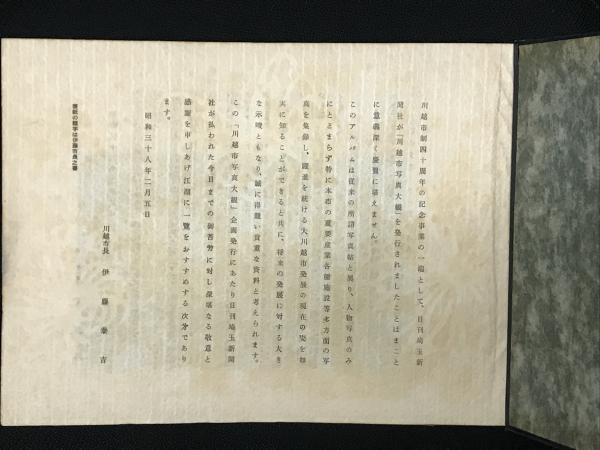 川越市制四十周年の記念事業の一端として、日刊埼玉新
聞社が「川越市写真大観」を発行されましたことはまこと
に意義深く慶賀に堪えません。
このアルバムは従来の所謂写真帖と異り、人物写真のみ
にとどまらず特に本市の重要産業各種施設等多方面の写
真を集録し、躍進を続ける大川越市発展の現在の姿を如
実に知ることができると共に、将来の発展に対する大き
な示唆ともなり、誠に得難い貴重な資料と考えられます。
この「川越市写真大観」企画発行にあたり日刊埼玉新聞
社が払われた今日までの御苦労に対し深甚なる敬意と
感謝を申しあげ江湖に一覧をおすすめする次第であり
ます。
昭和三十八年二月五日
川越市長 伊藤泰吉
表紙の題字は伊藤市長之書